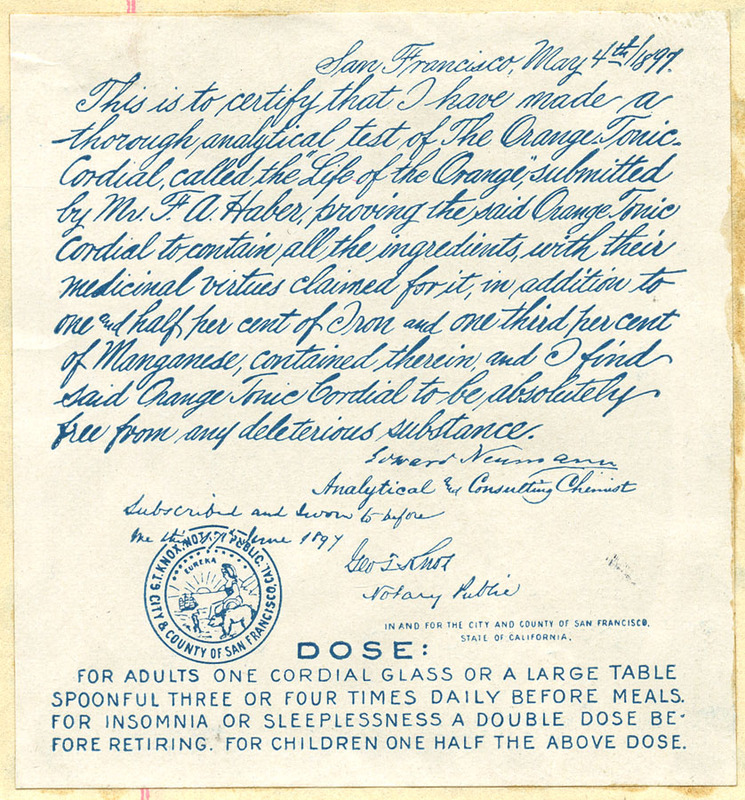 San Francisco, May 4th/1897.
This is to certify, that I have made a
thorough, analytical test of The Orange-Tonic-
Cordial, called, the "Life of the Orange", submitted
by Mr. F. A. Haber, proving the said Orange Tonic
Cordial to contain all the ingredients, with their
medicinal virtues claimed for it, in addition to
one and half per cent of Iron and one third per cent
of Manganese, contained therein, and I find
said Orange Tonic Cordial to be, absolutely
free from any deleterious substance.
Edward Neumann
Analytical and Consulting Chemist
Subscribed and Sworn to before
me this June 1897
Geo T Knox
Notary Public
G.T. KNOX, NOTARY PUBLIC.
CITY & COUNTY OF SAN FRANCISCO, CAL.
EUREKA
IN AND FOR THE CITY AND COUNTY OF SAN FRANCISCO,
STATE OF CALIFORNIA.
DOSE:
FOR ADULTS ONE CORDIAL GLASS OR A LARGE TABLE
SPOONFUL THREE OR FOUR TIMES DAILY BEFORE MEALS.
FOR INSOMNIA OR SLEEPLESSNESS A DOUBLE DOSE BE-
FORE RETIRING. FOR CHILDREN ONE HALF THE ABOVE DOSE.